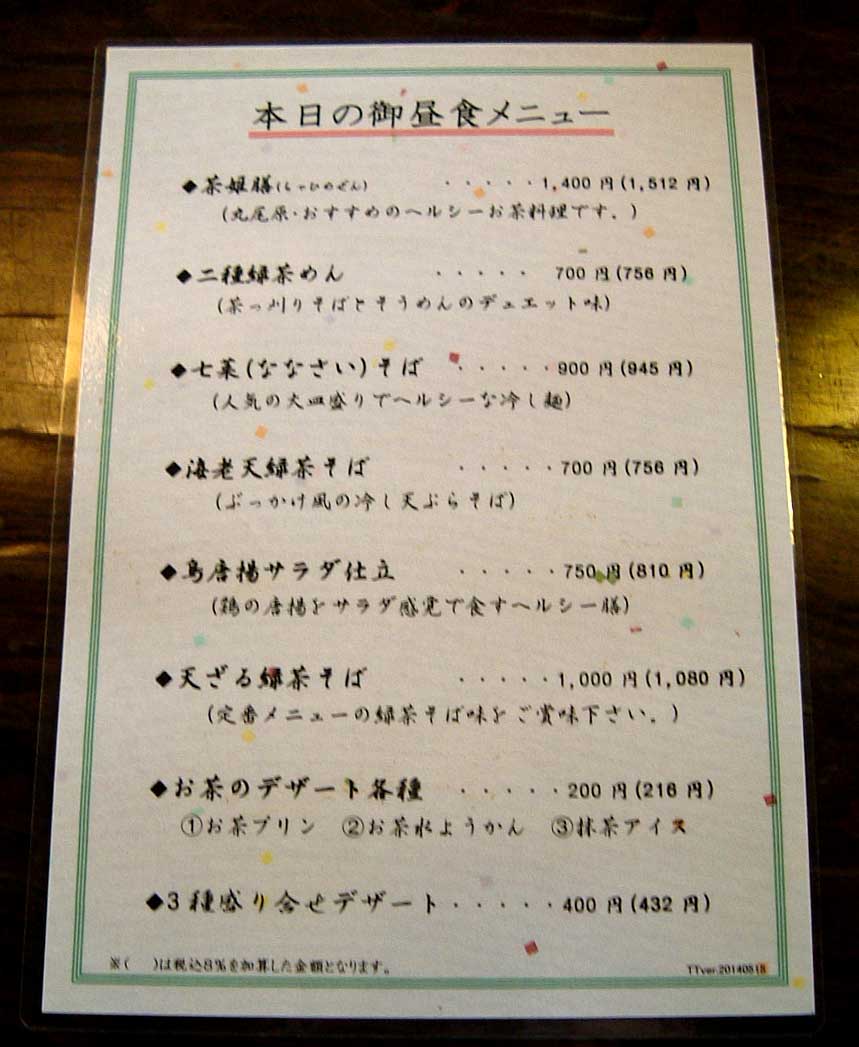 本日の御昼食メニュー
◆茶姫膳(ちゃひめぜん) ・・・・・1,400 円(1,512 円)
(丸尾原・おすすめのヘルシーお茶料理です。)
◆二種緑茶めん ・・・・・ 700 円(756 円)
(茶っ刈りそばとそうめんのデュエット味)
◆七菜(ななさい)そば ・・・・・900 円(945 円)
(人気の大皿盛りでヘルシーな冷し麺)
◆海老天緑茶そば ・・・・・700 円(756 円)
(ぶっかけ風の冷し天ぷらそば)
◆鳥唐揚サラダ仕立 ・・・・・750 円(810 円)
(鶏の唐揚をサラダ感覚で食すヘルシー膳)
◆天ざる緑茶そば ・・・・・1,000 円(1,080 円)
(定番メニューの緑茶そば味をご賞味下さい。)
◆お茶のデザート各種 ・・・・・200 円(216 円)
①お茶プリン ②お茶水ようかん ③抹茶アイス
◆3種盛り合せデザート・・・・・400 円(432 円)
※( )は税込8%を加算した金額となります。
TTver.20140515